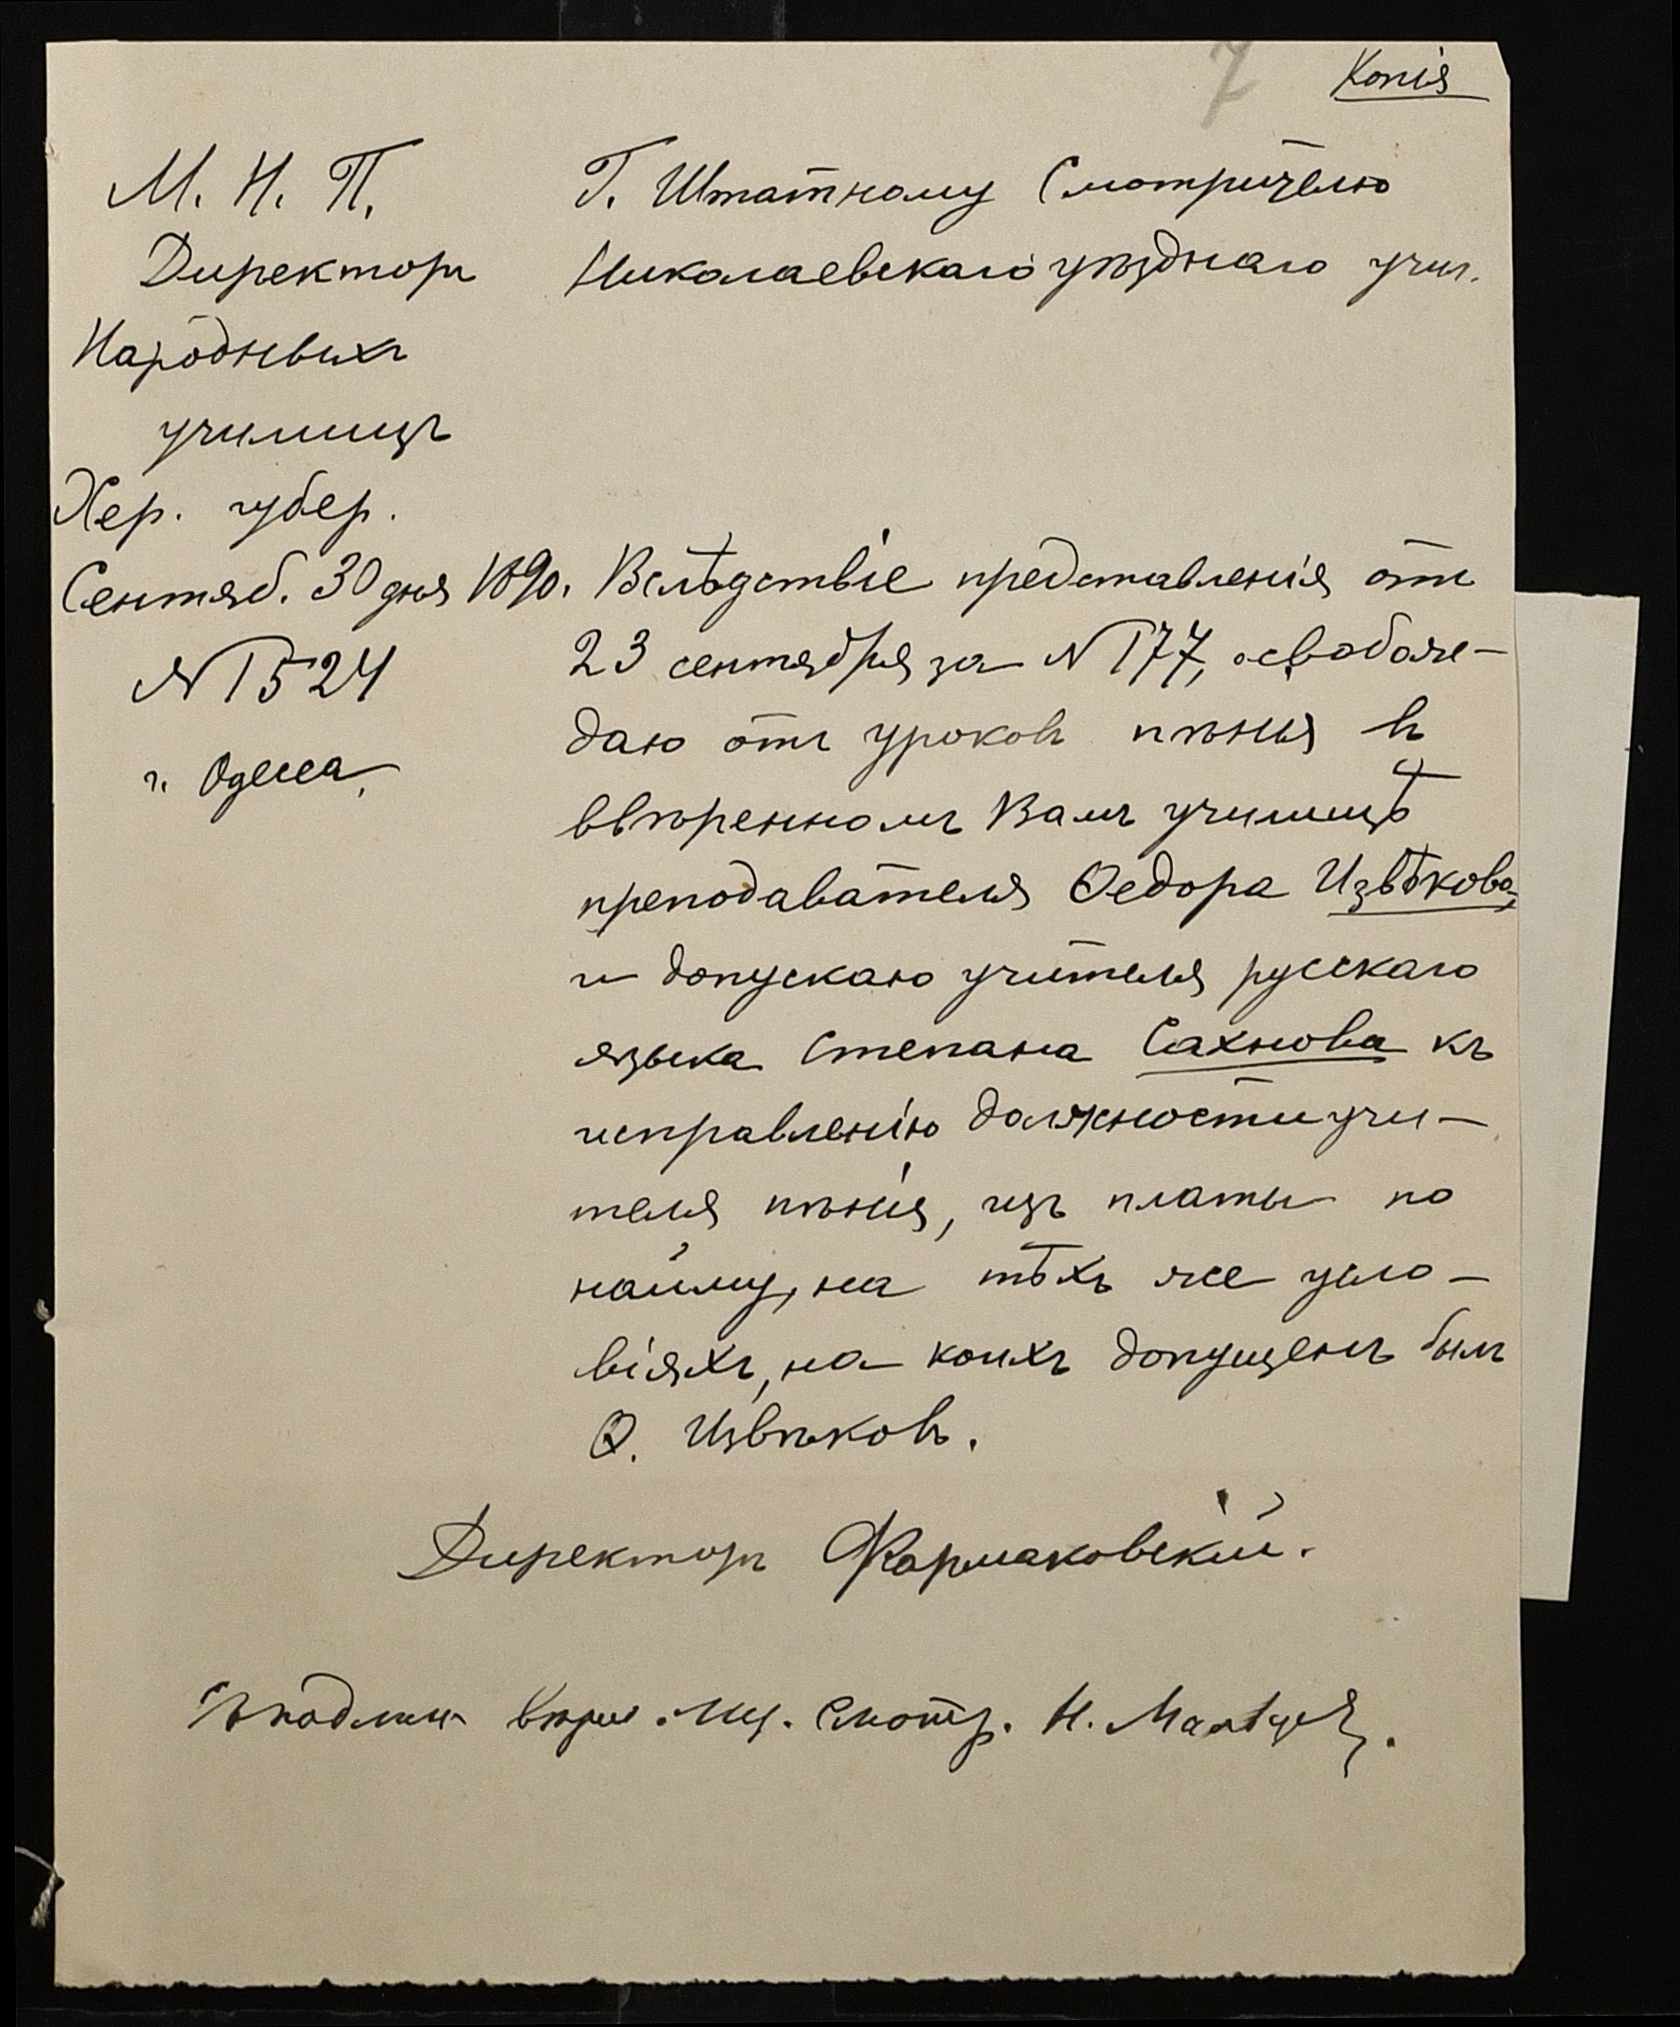 7
Копія
М. Н. П.
Директоръ
Народныхъ
училищъ
Хер. губер.
Сентяб. 30 дня 1890.
№ 1524
г. Одесса.
Г. Штатному Смотрителю
Николаевскаго уѣзднаго учил.
Вслѣдствіе представленія отъ
23 сентября за № 177, освобож-
даю отъ уроковъ пѣнія въ
ввѣренномъ Вамъ училищѣ
преподавателя Ѳедора Извѣкова,
и допускаю учителя русскаго
языка Степана Сахнова къ
исправленію должности учи-
теля пѣнія, изъ платы по
найму, на тѣхъ же усло-
віяхъ, на коихъ допущенъ былъ
Ѳ. Извѣковъ.
Директоръ Фармаковскій.
Смотр. Н.